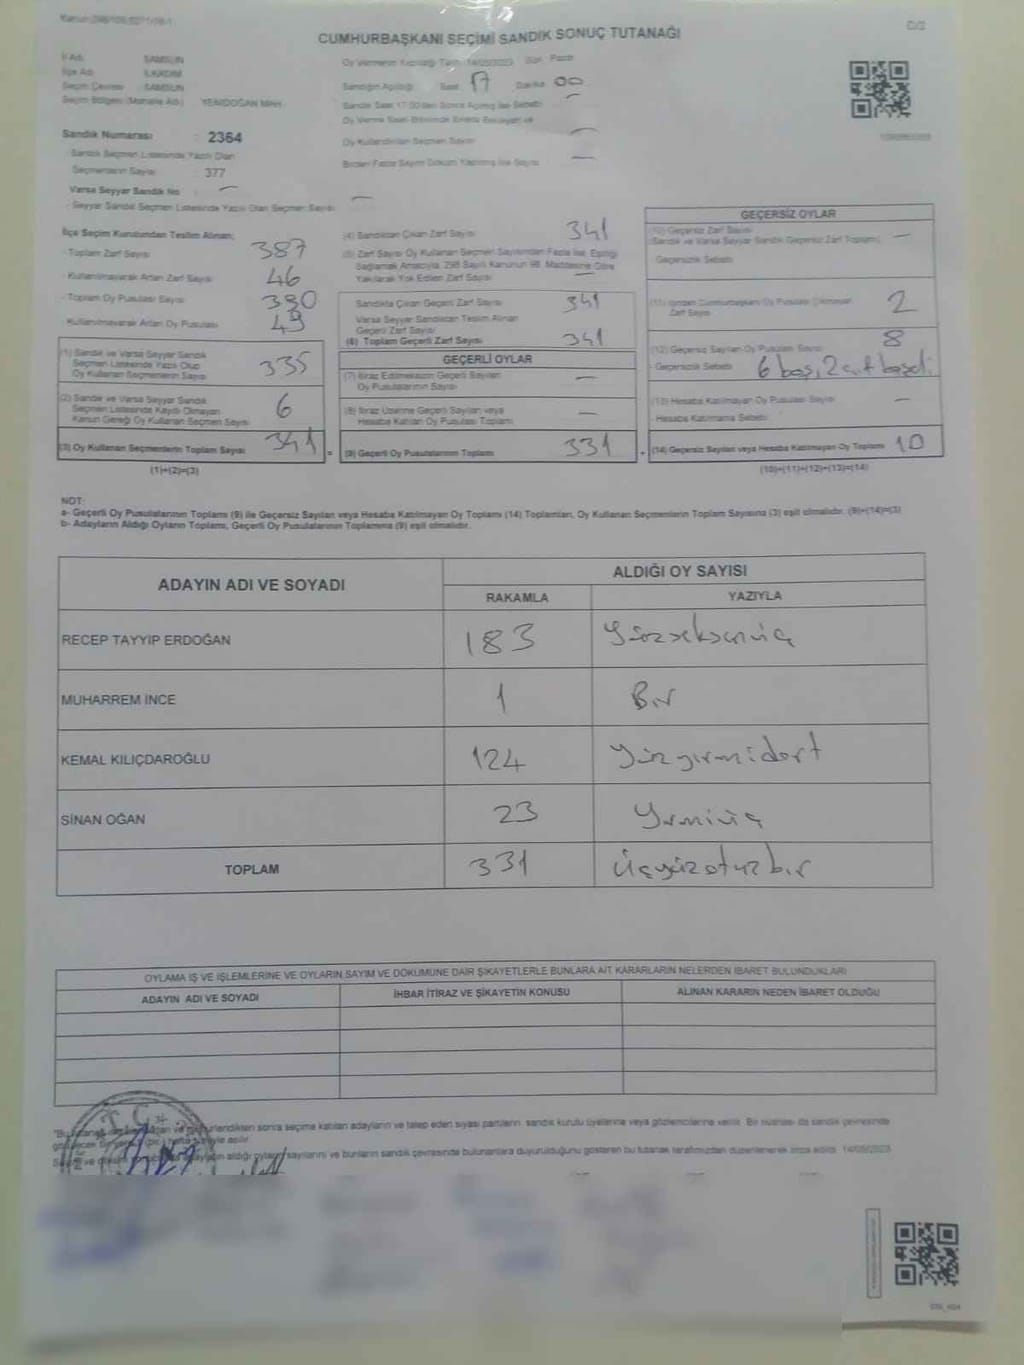 Kanun:298/105,6271/18-1
C/2
CUMHURBAŞKANI SEÇİMİ SANDIK SONUÇ TUTANAĞI
İl Adı : SAMSUN
İlçe Adı : İLKADIM
Seçim Çevresi : SAMSUN
Seçim Bölgesi (Mahalle Adı) : YENİDOĞAN MAH.
Sandık Numarası : 2364
- Sandık Seçmen Listesinde Yazılı Olan
Seçmenlerin Sayısı : 377
Varsa Seyyar Sandık No : —
- Seyyar Sandık Seçmen Listesinde Yazılı Olan Seçmen Sayısı : —
Oy Vermenin Yapıldığı Tarih : 14/05/2023 Gün : Pazar
Sandığın Açıldığı Saat : 17 Dakika : 00
Sandık Saat 17:00'den Sonra Açılmış İse Sebebi : —
Oy Verme Saati Bitiminde Sırada Bekleyen ve
Oy Kullandırılan Seçmen Sayısı : —
Birden Fazla Sayım Döküm Yapılmış İse Sayısı : —
İlçe Seçim Kurulundan Teslim Alınan;
- Toplam Zarf Sayısı : 387
- Kullanılmayarak Artan Zarf Sayısı : 46
- Toplam Oy Pusulası Sayısı : 390
- Kullanılmayarak Artan Oy Pusulası : 49
(1) Sandık ve Varsa Seyyar Sandık
Seçmen Listesinde Yazılı Olup
Oy Kullanan Seçmenlerin Sayısı : 335
(2) Sandık ve Varsa Seyyar Sandık
Seçmen Listesinde Kayıtlı Olmayan
Kanun Gereği Oy Kullanan Seçmen Sayısı : 6
(3) Oy Kullanan Seçmenlerin Toplam Sayısı : 341
(1)+(2)=(3)
(4) Sandıktan Çıkan Zarf Sayısı : 341
(5) Zarf Sayısı Oy Kullanan Seçmen Sayısından Fazla İse, Eşitliği
Sağlamak Amacıyla, 298 Sayılı Kanunun 98. Maddesine Göre
Yakılarak Yok Edilen Zarf Sayısı : —
Sandıkta Çıkan Geçerli Zarf Sayısı : 341
Varsa Seyyar Sandıktan Teslim Alınan
Geçerli Zarf Sayısı
(6) Toplam Geçerli Zarf Sayısı : 341
GEÇERLİ OYLAR
(7) İtiraz Edilmeksizin Geçerli Sayılan
Oy Pusulalarının Sayısı : —
(8) İtiraz Üzerine Geçerli Sayılan veya
Hesaba Katılan Oy Pusulası Toplamı : —
(9) Geçerli Oy Pusulalarının Toplamı : 331
GEÇERSİZ OYLAR
(10) Geçersiz Zarf Sayısı
(Sandık ve Varsa Seyyar Sandık Geçersiz Zarf Toplamı) : —
- Geçersizlik Sebebi :
(11) İçinden Cumhurbaşkanı Oy Pusulası Çıkmayan
Zarf Sayısı : 2
(12) Geçersiz Sayılan Oy Pusulası Sayısı : 8
- Geçersizlik Sebebi : 6 boş, 2 çift basılı
(13) Hesaba Katılmayan Oy Pusulası Sayısı : —
- Hesaba Katılmama Sebebi :
(14) Geçersiz Sayılan veya Hesaba Katılmayan Oy Toplamı : 10
(10)+(11)+(12)+(13)=(14)
NOT:
a- Geçerli Oy Pusulalarının Toplamı (9) ile Geçersiz Sayılan veya Hesaba Katılmayan Oy Toplamı (14) Toplamları, Oy Kullanan Seçmenlerin Toplam Sayısına (3) eşit olmalıdır. (9)+(14)=(3)
b- Adayların Aldığı Oyların Toplamı, Geçerli Oy Pusulalarının Toplamına (9) eşit olmalıdır.
ADAYIN ADI VE SOYADI
ALDIĞI OY SAYISI
RAKAMLA YAZIYLA
RECEP TAYYİP ERDOĞAN 183 Yüzseksenüç
MUHARREM İNCE 1 Bir
KEMAL KILIÇDAROĞLU 124 Yüzyirmidört
SİNAN OĞAN 23 Yirmiüç
TOPLAM 331 Üçyüzotuzbir
OYLAMA İŞ VE İŞLEMLERİNE VE OYLARIN SAYIM VE DÖKÜMÜNE DAİR ŞİKAYETLERLE BUNLARA AİT KARARLARIN NELERDEN İBARET BULUNDUKLARI
ADAYIN ADI VE SOYADI İHBAR İTİRAZ VE ŞİKAYETİN KONUSU ALINAN KARARIN NEDEN İBARET OLDUĞU
sonra seçime katılan adayların ve talep eden siyasi partilerin sandık kurulu üyelerine veya gözlemcilerine verilir. Bir nüshası da sandık çevresinde
aldığı oyların sayılarını ve bunların sandık çevresinde bulunanlara duyurulduğunu gösteren bu tutanak tarafımızdan düzenlenerek imza edildi. 14/05/2023
T.C.